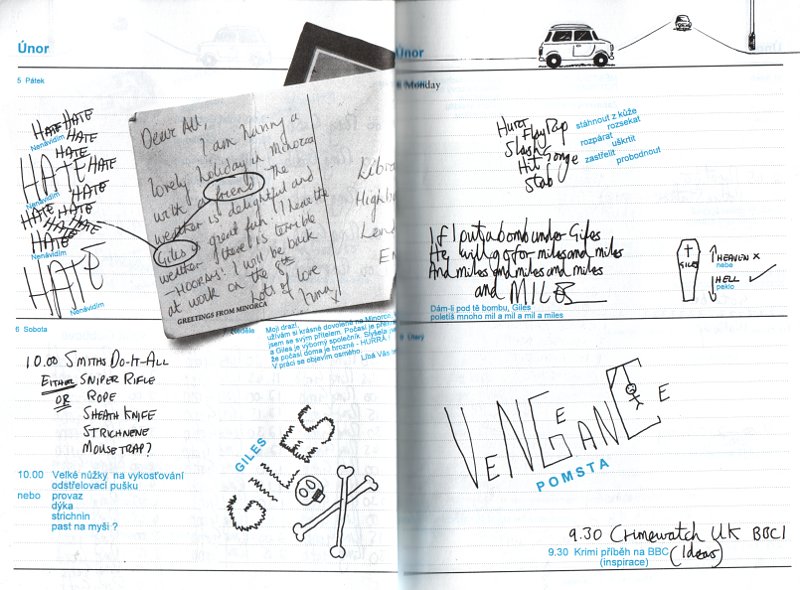 Únor
5 Pátek
HATE HATE
HATE
Nenávidím
HATE
HATE HATE
HATE
Nenávidím
HATE HATE
HATE
HATE
Nenávidím
HATE
Nenávidím
Dear All,
I am having a
lovely holiday in Minorca
with a friend. The
weather is delightful and
Giles is great fun. I hear the
weather there is terrible
- HOORAY! I will be back
at work on the 8th
Lots of love
GREETINGS FROM MINORCA
6 Sobota
Moji drazí,
užívám si krásné dovolené na Minorce
jsem se svým přítelem. Počasí je
a Giles je výborný společník.
že počasí doma je hrozné - HURRÁ
V práci se objevím osmého.
10.00 SMITHS DO-IT-ALL
EITHER SNIPER RIFLE
OR ROPE
SHEATH KNIFE
STRICHNENE
MOUSETRAP?
10.00 Velké nůžky na vykosťování
odstřelovací pušku
nebo provaz
dýka
strichnin
past na myši ?
GILES
GILES
Únor
Monday
Hurt
Flay Rap
Slash
Hit
Stab
stáhnout z kůže
rozsekat
rozpárat
uškrtit
zastřelit probodnout
If I put a bomb under Giles
He will go for miles and miles
And miles and miles and miles
and MILES
GILES
HEAVEN X
nebe
HELL ✓
peklo
Dám-li pod tě bombu, Giles
poletíš mnoho mil a mil a mil a miles
VENGEANCE
POMSTA
9.30 Crimewatch UK BBC1
(Ideas)
9.30 Krimi příběh na BBC
(inspirace)